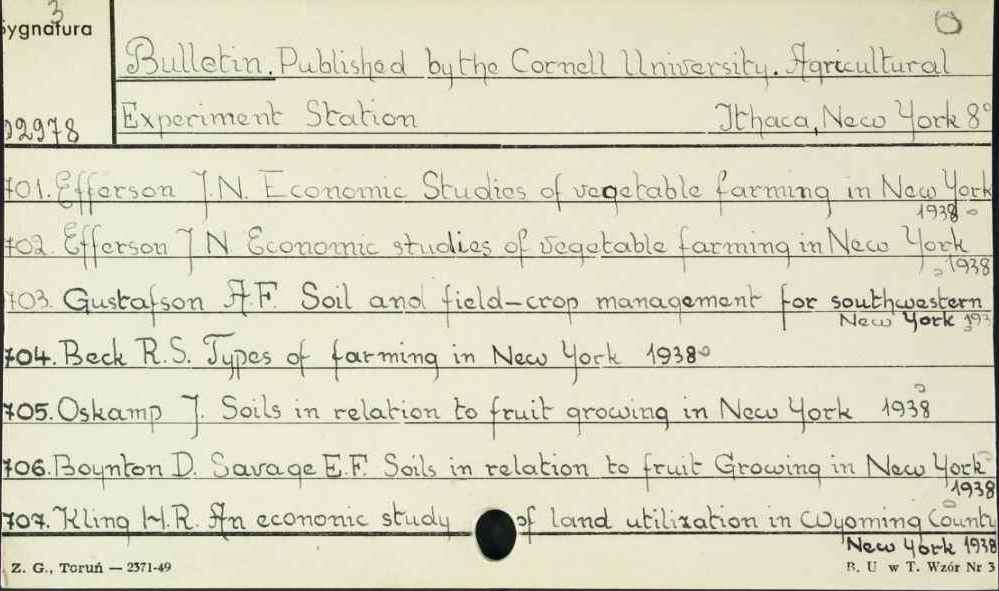 3
Sygnatura
Bulletin. Published by the Cornell University. Agricultural
Experiment Station Ithaca, New York 8°
02978
701. Efferson J.N. Economic Studies of vegetable farming in New York
1938
702. Efferson J N Economic studies of vegetable farming in New York
1938
703. Gustafson A.F. Soil and field-crop management for southwestern
New York 193
704. Beck R.S. Types of farming in New York 1938
705. Oskamp J. Soils in relation to fruit growing in New York 1938
706. Boynton D. Savage E.F. Soils in relation to fruit Growing in New York
1938
707. Kling H.R. An econonic study of land utilization in Wyoming County
New York 1938
Z. G., Toruń — 2371-49 B. U w T. Wzór Nr 3